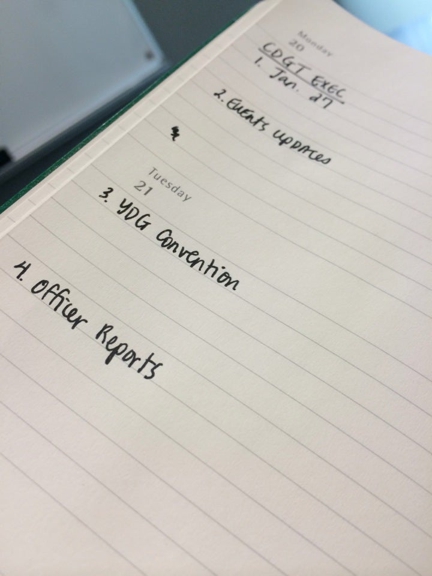 Monday
20
CDGT EXEC
1. Jan. 27
2. Events updates
Tuesday
21
3. YDG Convention
4. Officer Reports